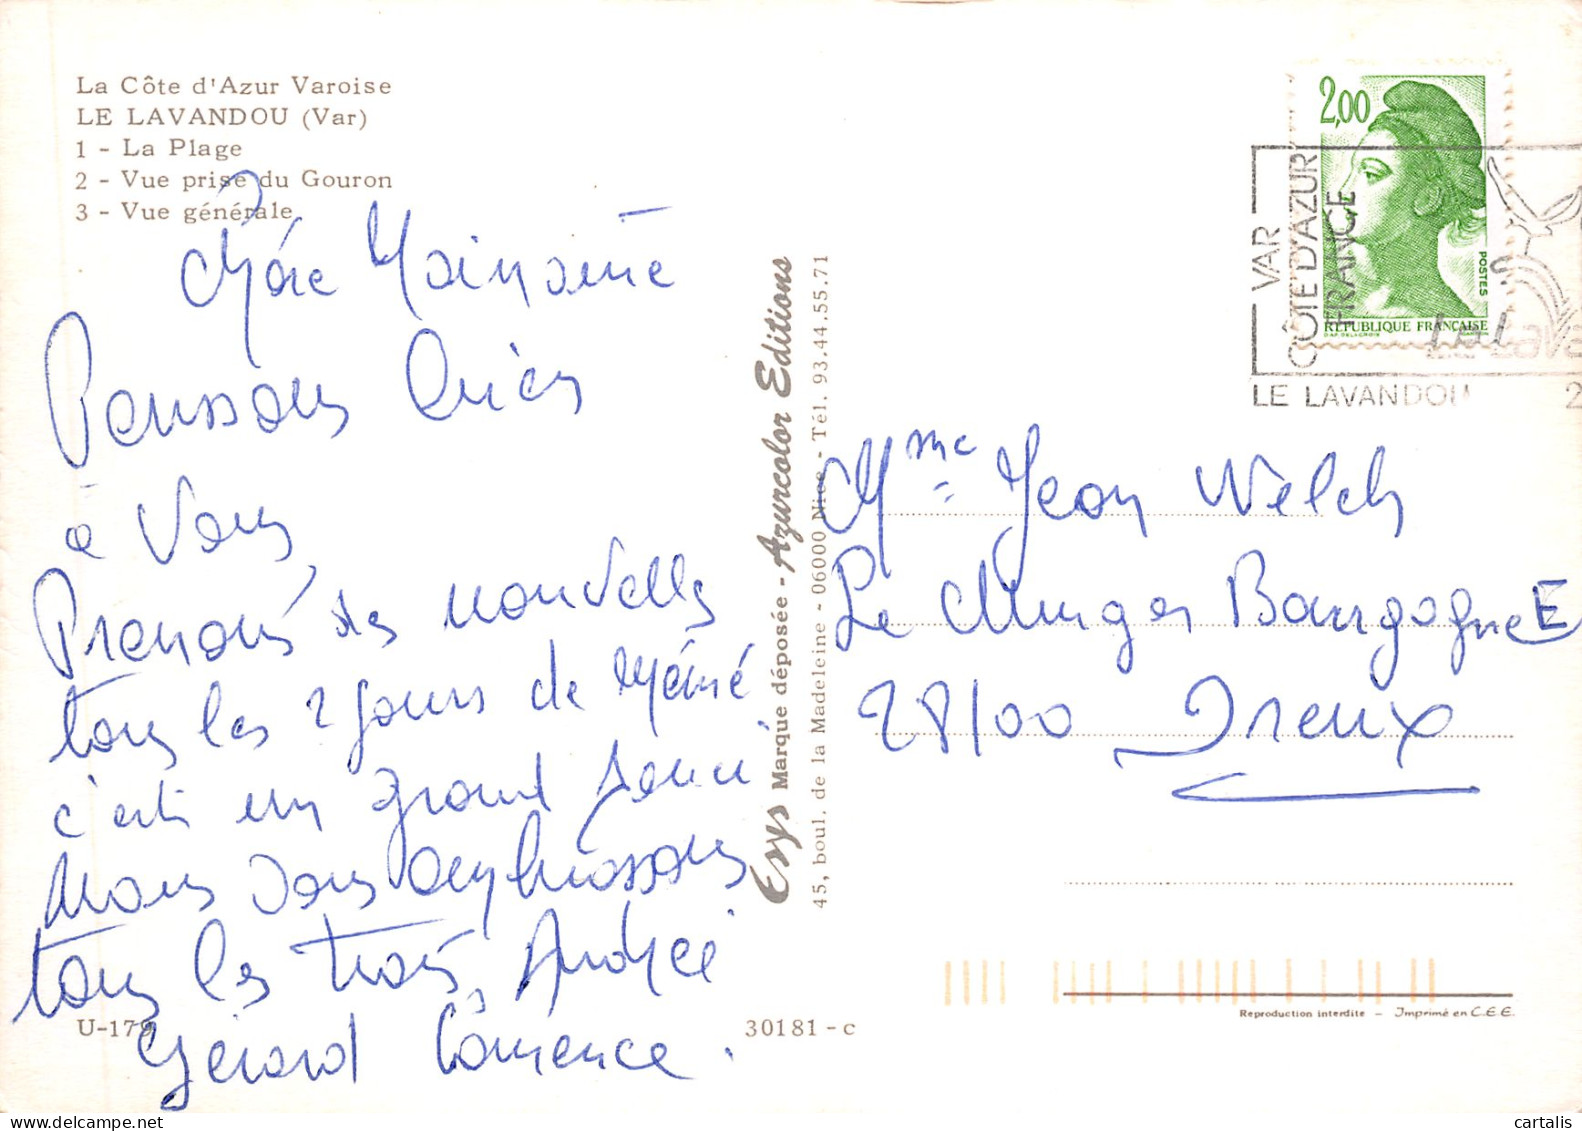 La Côte d'Azur Varoise
LE LAVANDOU (Var)
1 - La Plage
2 - Vue prise du Gouron
3 - Vue générale
Pensons bien
à vous
Prenons des nouvelles
tous les 2 jours de Mémé
c'est un grand souci
Nous vous embrassons
tous les trois, Andrée
Gérard Laurence.
U-179
30181 - c
Esys Marque déposée - Azurcolor Editions
45, boul. de la Madeleine - 06000 Nice - Tél. 93.44.55.71
2,00
POSTES
RÉPUBLIQUE FRANÇAISE
VAR
CÔTE D'AZUR
FRANCE
LE LAVANDOU
Mme Jean Welch
Le Murger Bourgogne E
28100 Dreux
Reproduction interdite - Imprimé en C.E.E.
cartalis